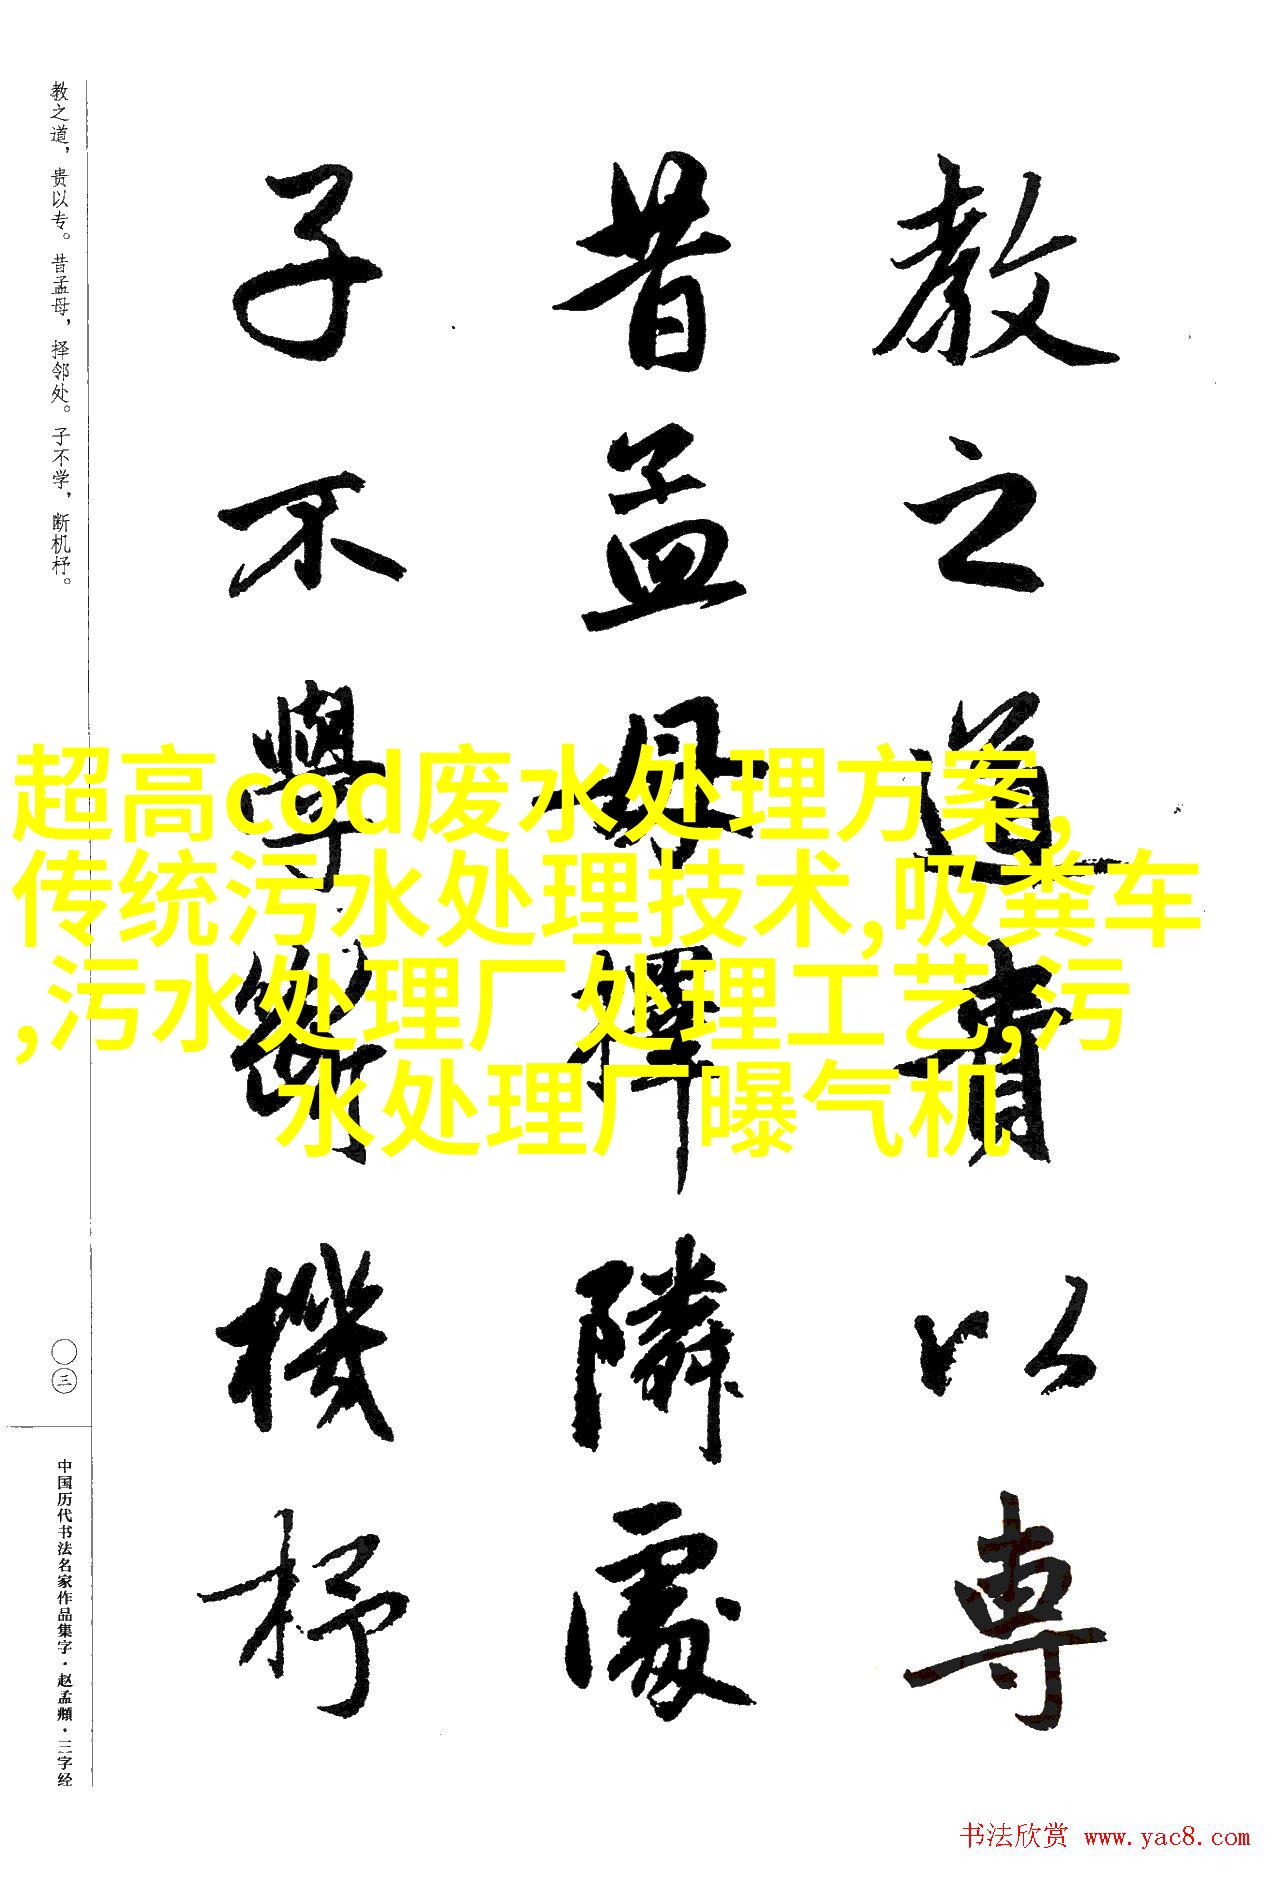 教之道貴以專
昔孟母擇隣處
子不學斷機杼
教之道，贵以专。昔孟母，择邻处。子不学，断机杼。
〇三
中国历代书法名家作品集字·赵孟頫·三字经
超高cod废水处理方案,
传统污水处理技术,吸粪车
,污水处理厂处理工艺,污
水处理厂曝气机
书法欣赏 www.yac8.com